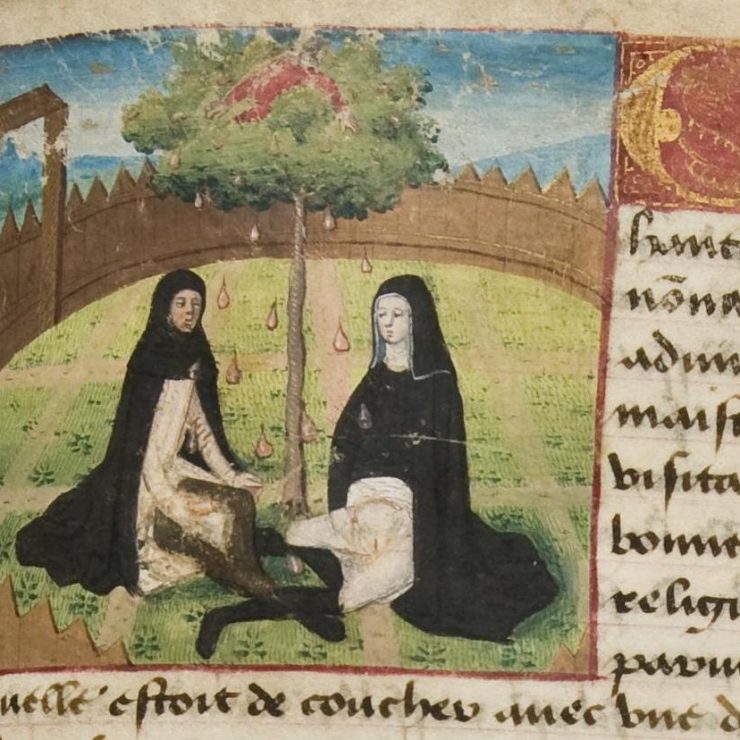 hant
nōna
adui
maist
visita
bonne
religi
parui
uelle estoit de coucher auec vne d